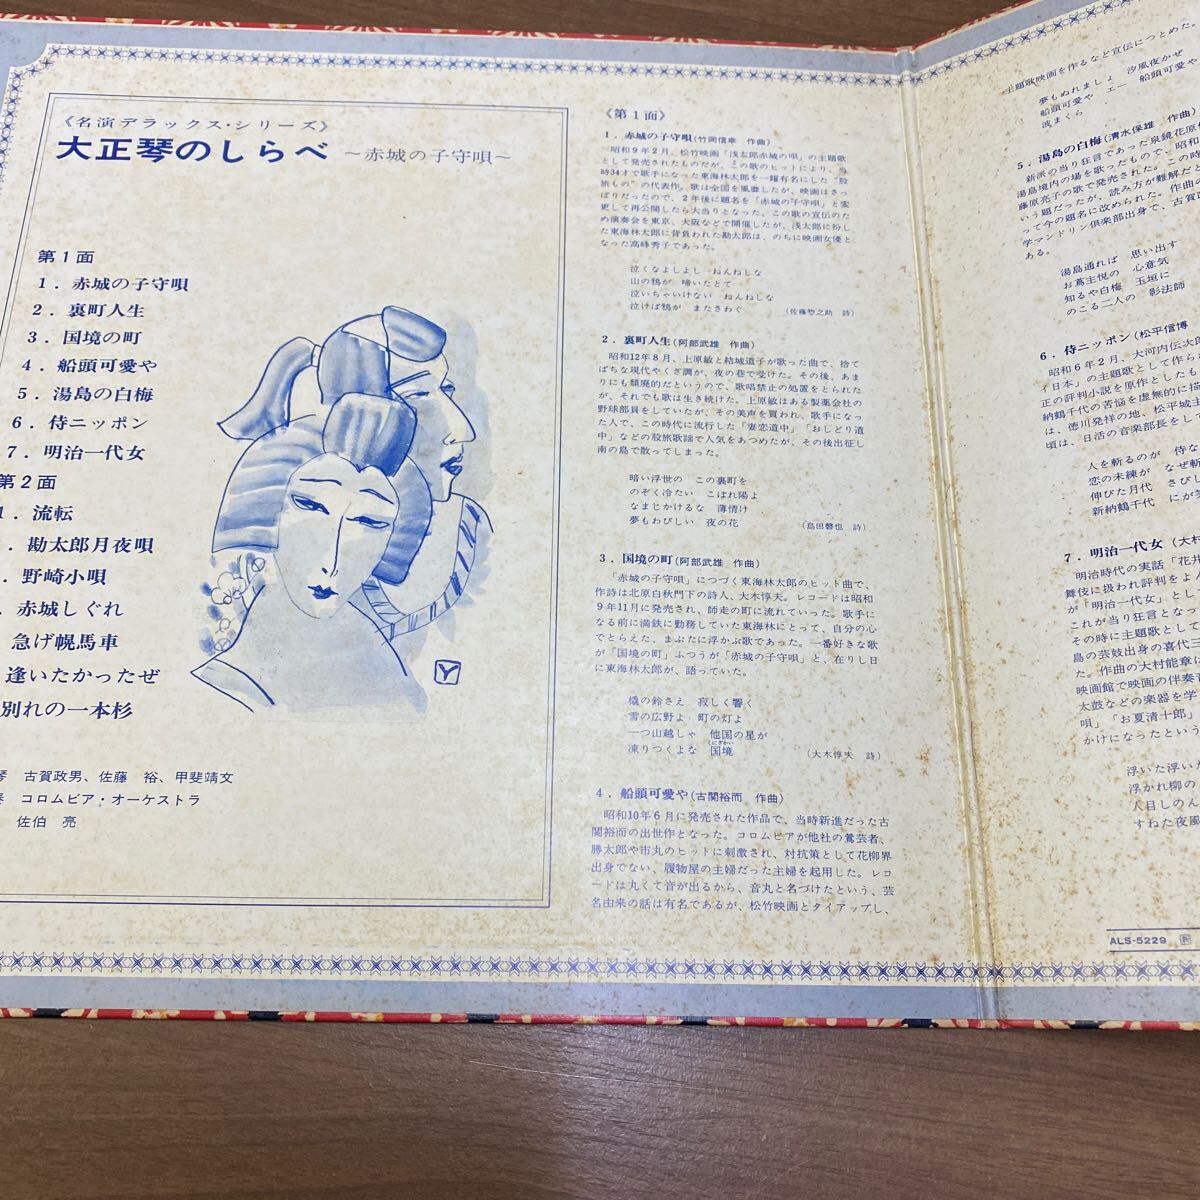 《名演デラックス・シリーズ》
大正琴のしらべ ～赤城の子守唄～
第1面
1．赤城の子守唄
2．裏町人生
3．国境の町
4．船頭可愛や
5．湯島の白梅
6．侍ニッポン
7．明治一代女
第2面
1．流転
．勘太郎月夜唄
．野崎小唄
．赤城しぐれ
急げ幌馬車
逢いたかったぜ
別れの一本杉
琴 古賀政男、佐藤 裕、甲斐靖文
奏 コロムビア・オーケストラ
佐伯 亮
《第1面》
1．赤城の子守唄(竹岡信幸 作曲)
昭和9年2月、松竹映画「浅太郎赤城の唄」の主題歌
として発売されたものだが、この歌のヒットにより、当
時34才で歌手になった東海林太郎を一躍有名にした“股
旅もの”の代表作。歌は全国を風靡したが、映画はさっ
ぱりだったので、2年後に題名を「赤城の子守唄」と変
更して再公開したら大当りとなった。この歌の宣伝のた
め演奏会を東京、大阪などで開催したが、浅太郎に扮し
た東海林太郎に背負われた勘太郎は、のちに映画女優と
なった高峰秀子であった。
泣くなよしよし ねんねしな
山の鴉が 啼いたとて
泣いちゃいけない ねんねしな
泣けば鴉が またさわぐ
(佐藤惣之助 詩)
2．裏町人生(阿部武雄 作曲)
昭和12年8月、上原敏と結城道子が歌った曲で、捨て
ばちな現代やくざ調が、夜の巷で受けた。その後、あま
りにも頽廃的だというので、歌唱禁止の処置をとられた
が、それでも歌は生き続けた。上原敏はある製薬会社の
野球部員をしていたが、その美声を買われ、歌手になっ
た人で、この時代に流行した「妻恋道中」「おしどり道
中」などの股旅歌謡で人気をあつめたが、その後出征し
南の島で散ってしまった。
暗い浮世の この裏町を
のぞく冷たい こぼれ陽よ
なまじかけるな 薄情け
夢もわびしい 夜の花
(島田磬也 詩)
3．国境の町(阿部武雄 作曲)
「赤城の子守唄」につづく東海林太郎のヒット曲で、
作詩は北原白秋門下の詩人、大木惇夫。レコードは昭和
9年11月に発売され、師走の町に流れていった。歌手に
なる前に満鉄に勤務していた東海林にとって、自分の心
でとらえた、まぶたに浮かぶ歌であった。一番好きな歌
が「国境の町」ふつうが「赤城の子守唄」と、在りし日
に東海林太郎が、語っていった。
橇の鈴さえ 寂しく響く
雪の広野よ 町の灯よ
一つ山越しゃ 他国の星が
凍りつくよな 国境
(大木惇夫 詩)
4．船頭可愛や(古関裕而 作曲)
昭和10年6月に発売された作品で、当時新進だった古
関裕而の出世作となった。コロムビアが他社の鶯芸者、
勝太郎や市丸のヒットに刺激され、対抗策として花柳界
出身でない、履物屋の主婦だった主婦を起用した。レコ
ードは丸くて音が出るから、音丸と名づけたという、芸
名由来の話は有名であるが、松竹映画とタイアップし、
主題歌映画を作るなど宣伝につとめた。
夢もぬれましょ 汐風夜かぜ
船頭可愛や エー 船頭可愛や
波まくら
5．湯島の白梅(清水保雄 作曲)
新派の当り狂言であった泉鏡花原作
湯島境内の場を歌ったもので、昭和
藤原亮子の歌で発売された。この時
いう題だったが、読み方が難解だと
って今の題名に改められた。作曲の
学マンドリン倶楽部出身で、古賀政
ある。
湯島通れば 思い出す
お蔦主税の 心意気
知るや白梅 玉垣に
のこる二人の 影法師
6．侍ニッポン(松平信博
昭和6年2月、大河内伝次郎
イ日本」の主題歌として作ら
正の評判小説を原作としたも
納鶴千代の苦悩を虚無的に描
は、徳川発祥の地、松平城主
頃は、日活の音楽部長をし
人を斬るのが 侍な
恋の未練が なぜ斬
伸びた月代 さびし
新納鶴千代 にが笑
7．明治一代女(大村
明治時代の実話「花井
舞伎に扱われ評判をよん
が「明治一代女」として
これが当り狂言となっ
その時に主題歌として
島の芸妓出身の喜代三
た。作曲の大村能章は
映画館で映画の伴奏音
太鼓などの楽器を学
唄」「お夏清十郎」
かけになったという
浮いた浮いた
浮かれ柳の
人目しのん
すねた夜風
ALS-5229